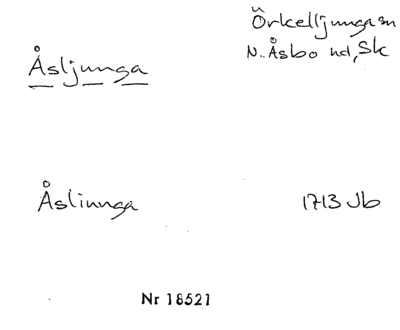 Örkelljunga sn
N. Åsbo hd, Sk
Åsljunga
Åsliunga 1713 Jb
Nr 18521